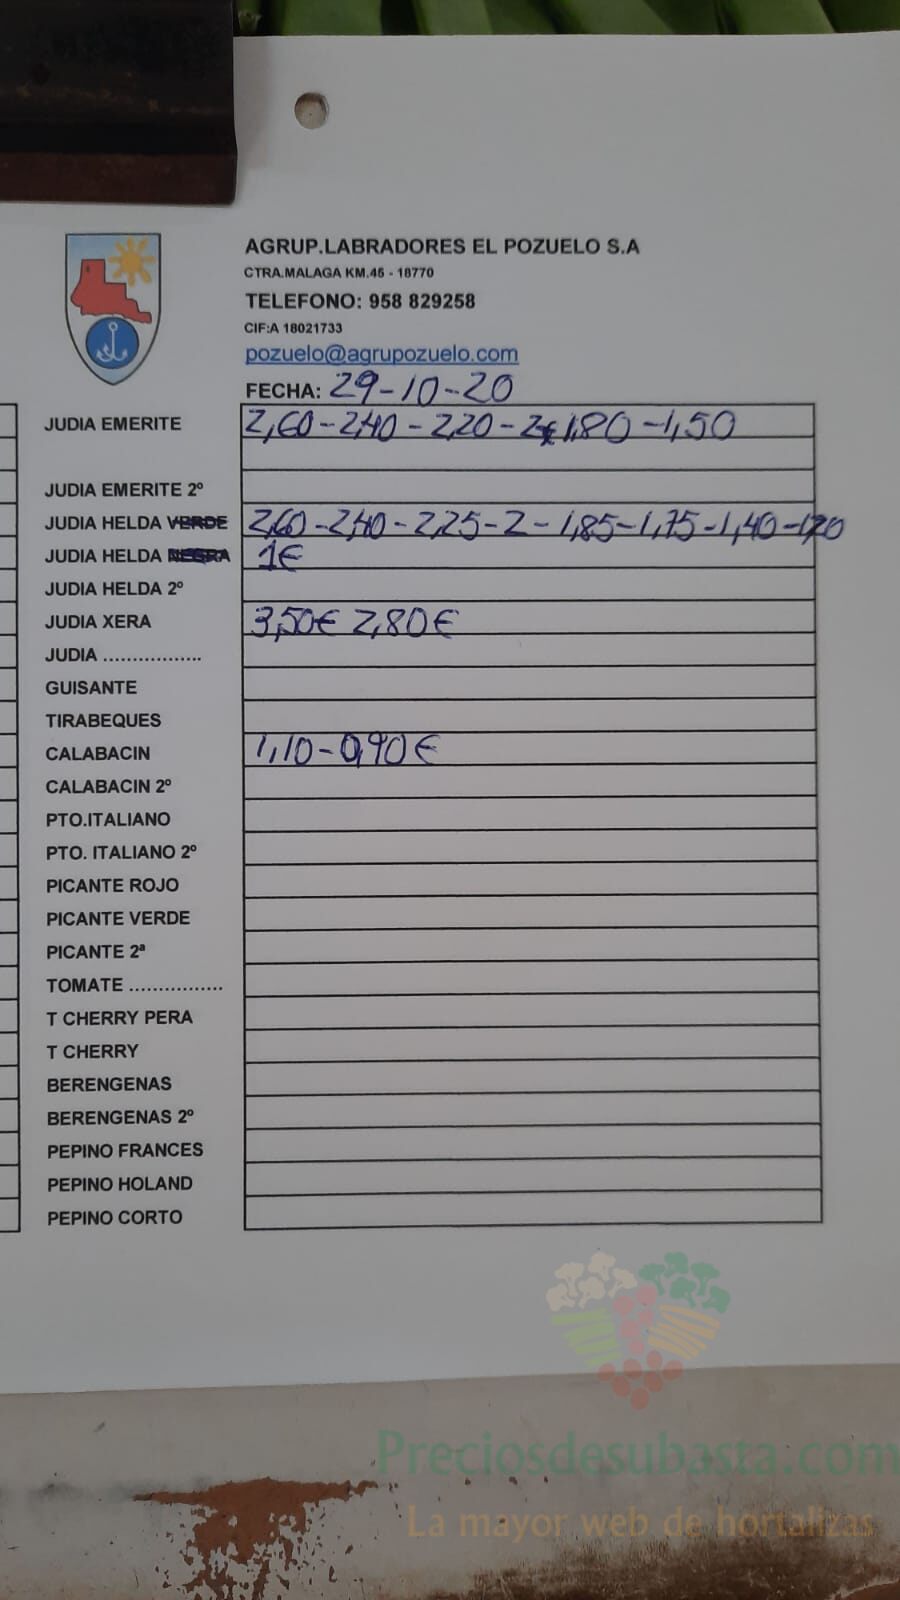 AGRUP.LABRADORES EL POZUELO S.A
CTRA.MALAGA KM.45 - 18770
TELEFONO: 958 829258
CIF:A 18021733
pozuelo@agrupozuelo.com
FECHA: 29-10-20
JUDIA EMERITE 2,60-2,40-2,20-2€ 1,80-1,50
JUDIA EMERITE 2º
JUDIA HELDA VERDE 2,60-2,40-2,25-2-1,85-1,75-1,40-1,20
JUDIA HELDA NEGRA 1€
JUDIA HELDA 2º
JUDIA XERA 3,50€ 2,80€
JUDIA .................
GUISANTE
TIRABEQUES
CALABACIN 1,10-0,90€
CALABACIN 2º
PTO.ITALIANO
PTO. ITALIANO 2º
PICANTE ROJO
PICANTE VERDE
PICANTE 2ª
TOMATE ................
T CHERRY PERA
T CHERRY
BERENGENAS
BERENGENAS 2º
PEPINO FRANCES
PEPINO HOLAND
PEPINO CORTO
Preciosdesubasta.com
La mayor web de hortalizas